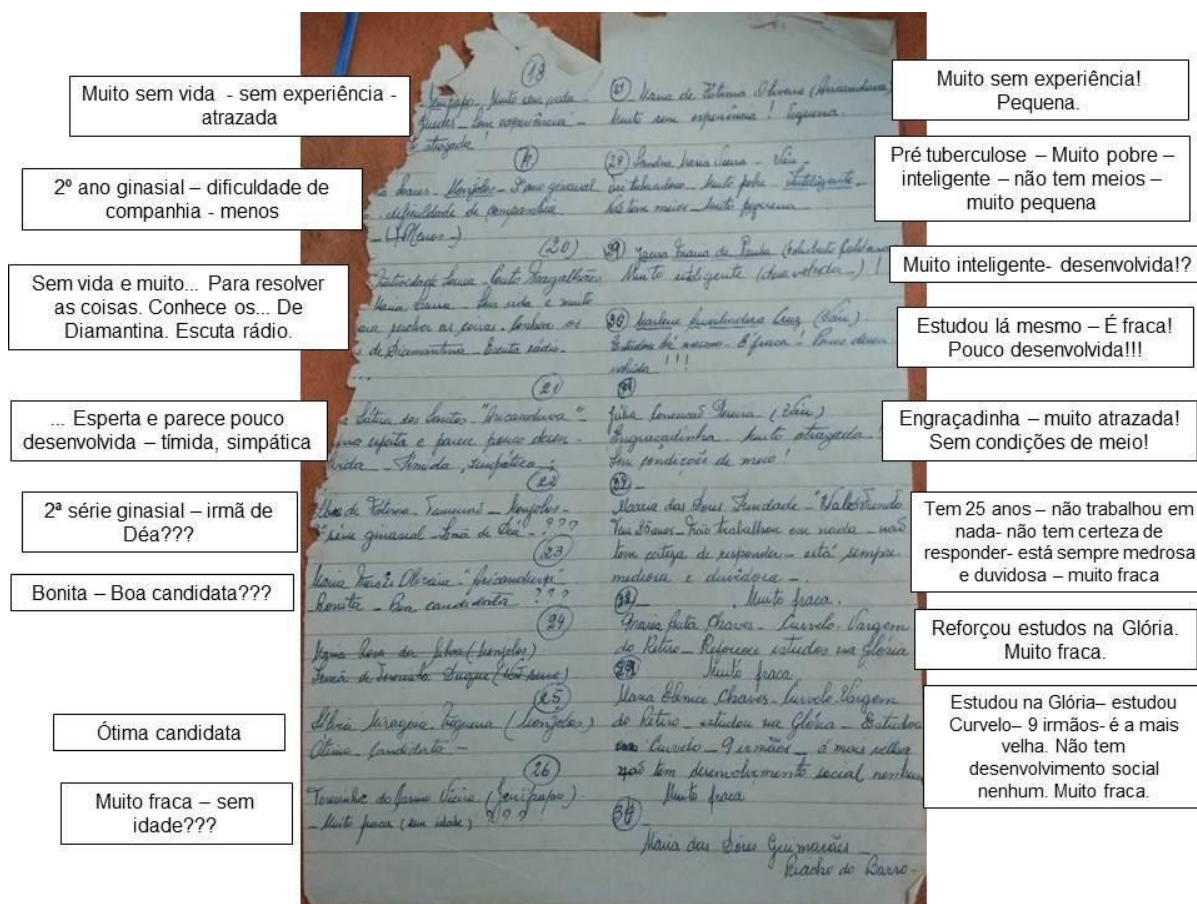 Muito sem vida - sem experiência -
atrazada
2º ano ginasial – dificuldade de
companhia - menos
Sem vida e muito... Para resolver
as coisas. Conhece os... De
Diamantina. Escuta rádio.
... Esperta e parece pouco
desenvolvida – tímida, simpática
2ª série ginasial – irmã de
Déa???
Bonita – Boa candidata???
Ótima candidata
Muito fraca – sem
idade???
18
Jenipapo - Muito sem vida -
Sem experiência -
atrazada
Soares - Monjolos - 2º ano ginasial
dificuldade de companhia
- Menos -
20
Natividade Souza - Couto Magalhães
Maria - Sem vida e muito
para resolver as coisas. Conhece os
de Diamantina - Escuta rádio -
21
dos Santos "Aricanduva" -
esperta e parece pouco desen-
vida - Tímida, simpática -
22
de Fátima - Monjolos -
2ª série ginasial - Irmã de Déa - ???
23
Maria Oliveira - "Aricanduva"
Bonita - Boa candidata ???
24
Maria Rosa da Silva (Monjolos)
Irmã de Duque
25
(Monjolos)
Ótima - Candidata -
26
Terezinha do Carmo Vieira (Jenipapo) -
- Muito fraca (sem idade) ???
Maria de Fátima Oliveira (Aricanduva)
Muito sem experiência! Pequena.
28 Sandra Maria - Vau -
Pré tuberculose - Muito pobre - Inteligente -
Não tem meios - Muito pequena
29 Maria de Paula
Muito inteligente (desenvolvida -) !
30 Marlene Cruz (Vau).
Estudou lá mesmo - É fraca! Pouco desen
volvida !!!
31
Júlia Conceição Pereira (Vau)
Engraçadinha - Muito atrazada!
Sem condições de meio!
Maria das Dores Trindade -
Tem 25 anos - Não trabalhou em nada - não
tem certeza de responder - está sempre
medrosa e duvidosa -.
Muito fraca.
Maria Chaves - Curvelo - Vargem
do Retiro - Reforçou estudos na Glória
Muito fraca
Maria Elenice Chaves - Curvelo - Vargem
do Retiro - estudou na Glória - Estudou
Curvelo - 9 irmãos - é mais velha
não tem desenvolvimento social nenhum
Muito fraca
Maria das Dores Guimarães -
Riacho do Barro -
Muito sem experiência!
Pequena.
Pré tuberculose – Muito pobre –
inteligente – não tem meios –
muito pequena
Muito inteligente- desenvolvida!?
Estudou lá mesmo – É fraca!
Pouco desenvolvida!!!
Engraçadinha – muito atrazada!
Sem condições de meio!
Tem 25 anos – não trabalhou em
nada- não tem certeza de
responder- está sempre medrosa
e duvidosa – muito fraca
Reforçou estudos na Glória.
Muito fraca.
Estudou na Glória– estudou
Curvelo– 9 irmãos- é a mais
velha. Não tem
desenvolvimento social
nenhum. Muito fraca.